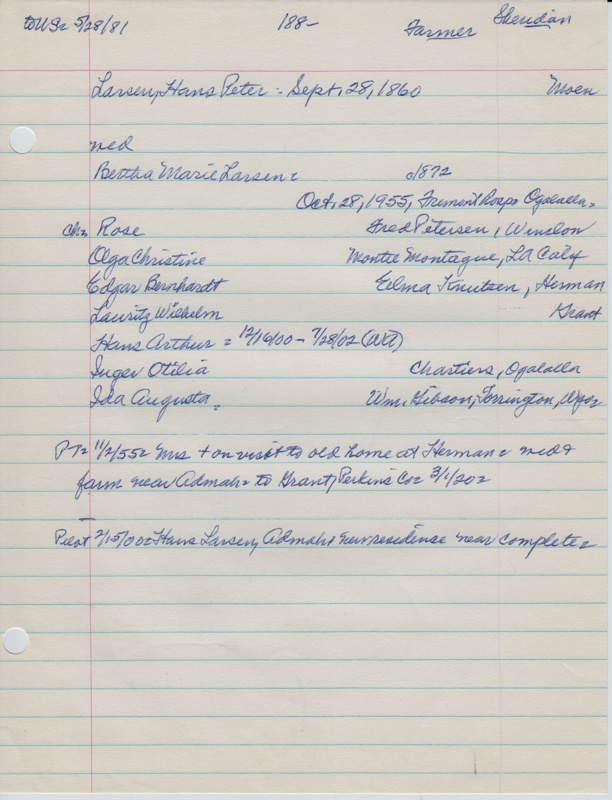 to USA 5/28/81 188- Farmer Sheridan
Larsen, Hans Peter = Sept. 28, 1860 Moen
wed
Bertha Marie Larsen = c/1872
Oct. 28, 1955, Fremont hosp. Ogalalla =
ch = Rose Fred Petersen, Winslow
Olga Christine Monte Montague, LA Calif
Edgar Bernhardt Elma Knutzen, Herman
Lauritz Wilhelm Grant
Hans Arthur = 12/16/00 - 7/28/02
Inger Otilia Chartiers, Ogalalla
Ida Augusta = Wm. Gibson, Torrington, Wyo =
PT = 11/2/55 = Mrs + on visit to old home at Herman = wed +
farm near Admah = to Grant, Perkins Co = 3/1/20 =
Pilot 2/15/00 = Hans Larsen, Admah + new residense near complete =